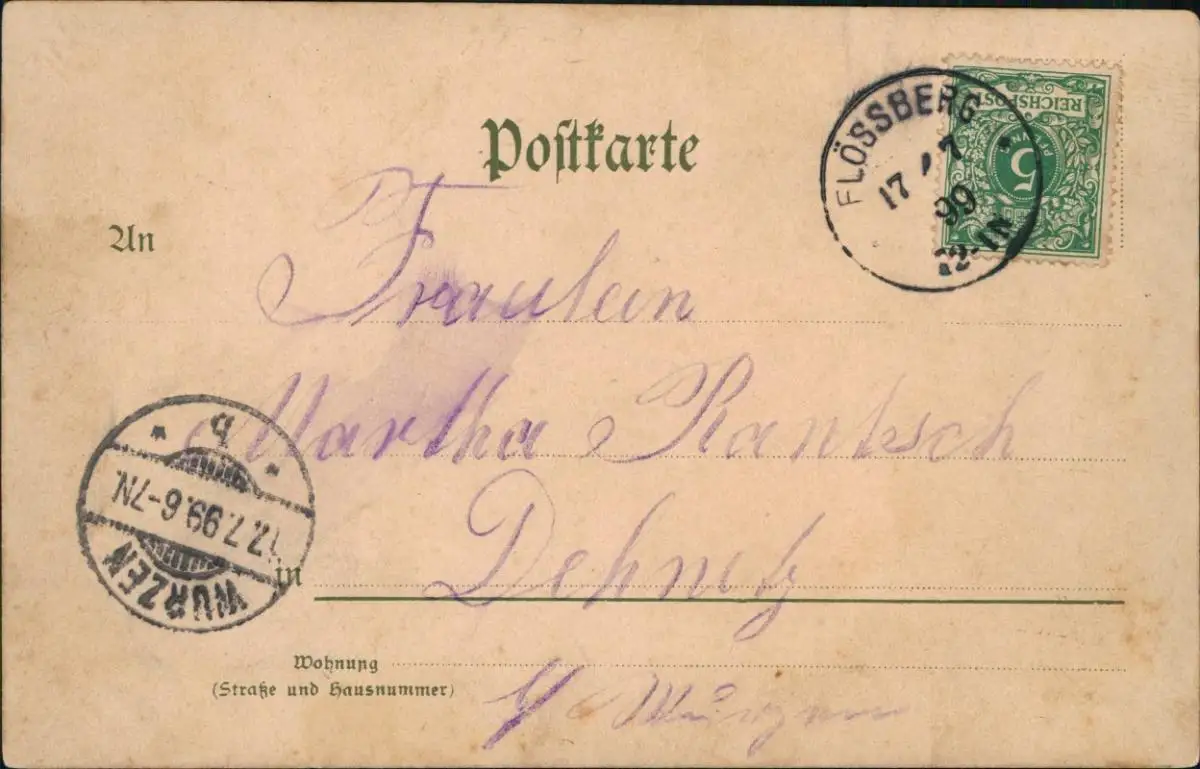 Postkarte
REICHSPOST
5
PFENNIG
FLÖSSBERG
17 7
99
12-1N
An
Fräulein
Martha Rantzsch
b
17.7.99.6-7N.
WURZEN
in
Dehnitz
Wohnung
(Straße und Hausnummer)
b/ Wurzen